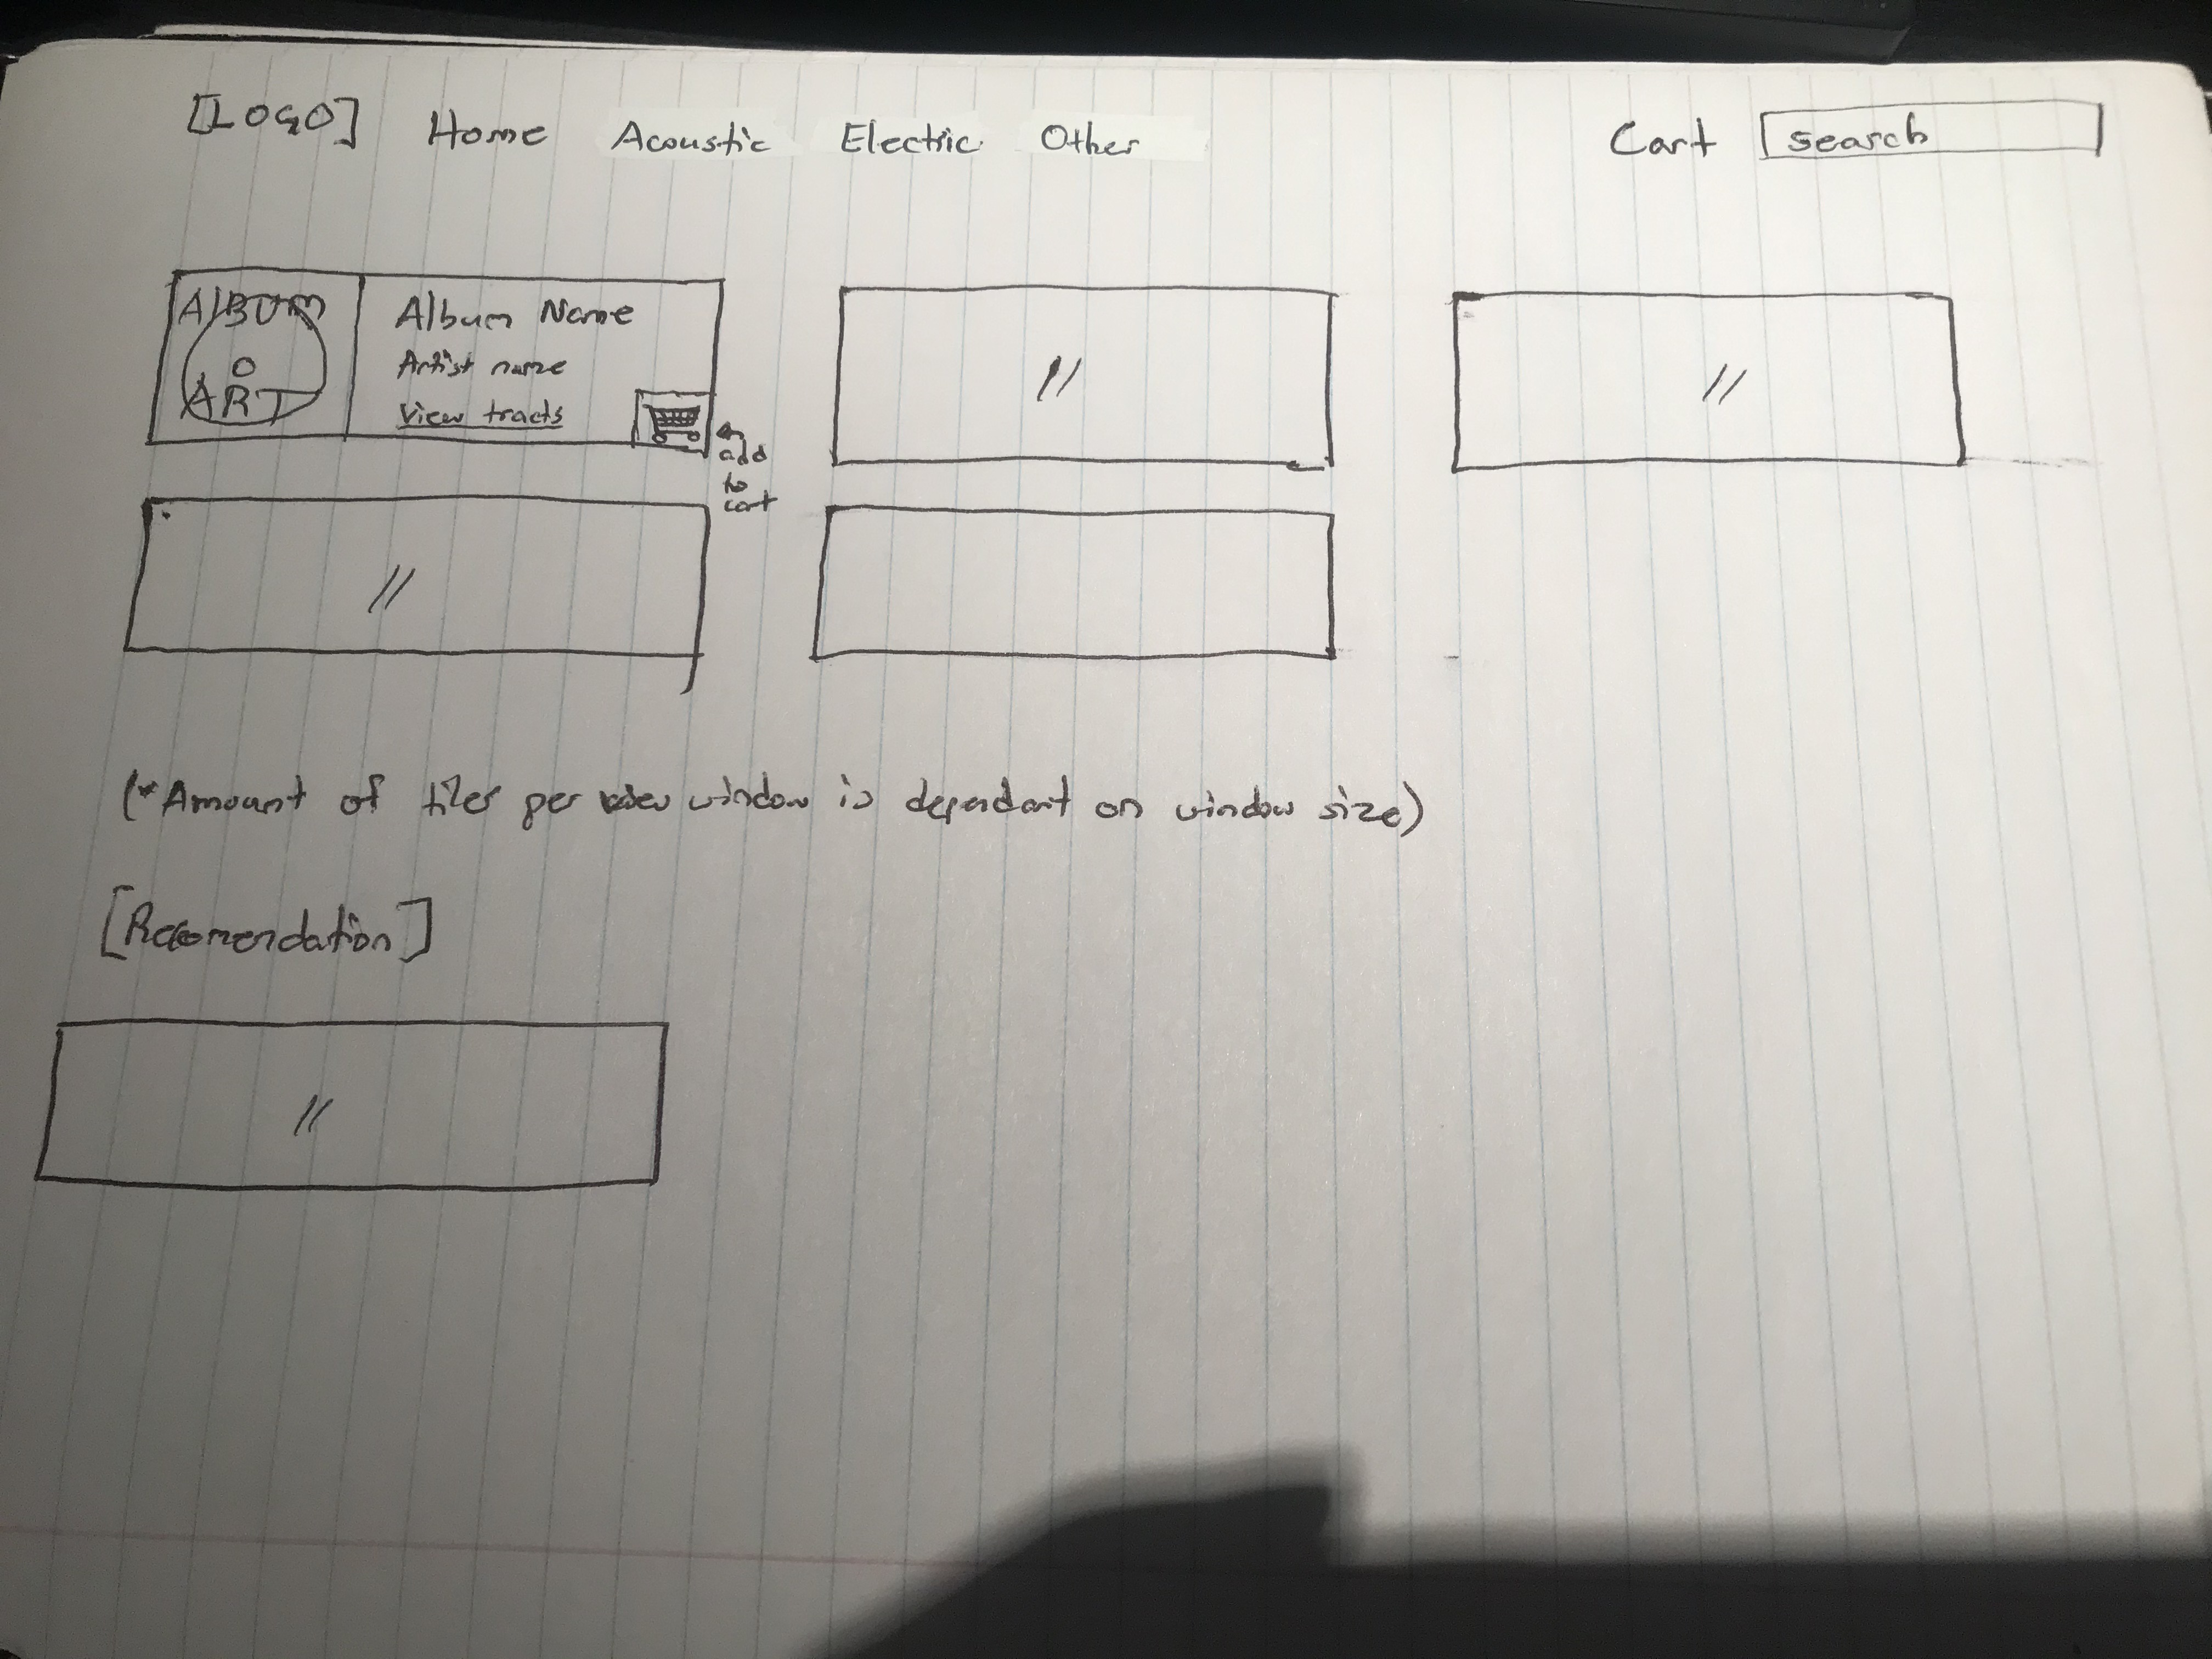 [LOGO] Home Acoustic Electric Other Cart search
ALBUM
ART
Album Name
Artist name
View tracts
add
to
cart
//
//
//
(*Amount of tiles per view window is dependant on window size)
[Recomendation]
//